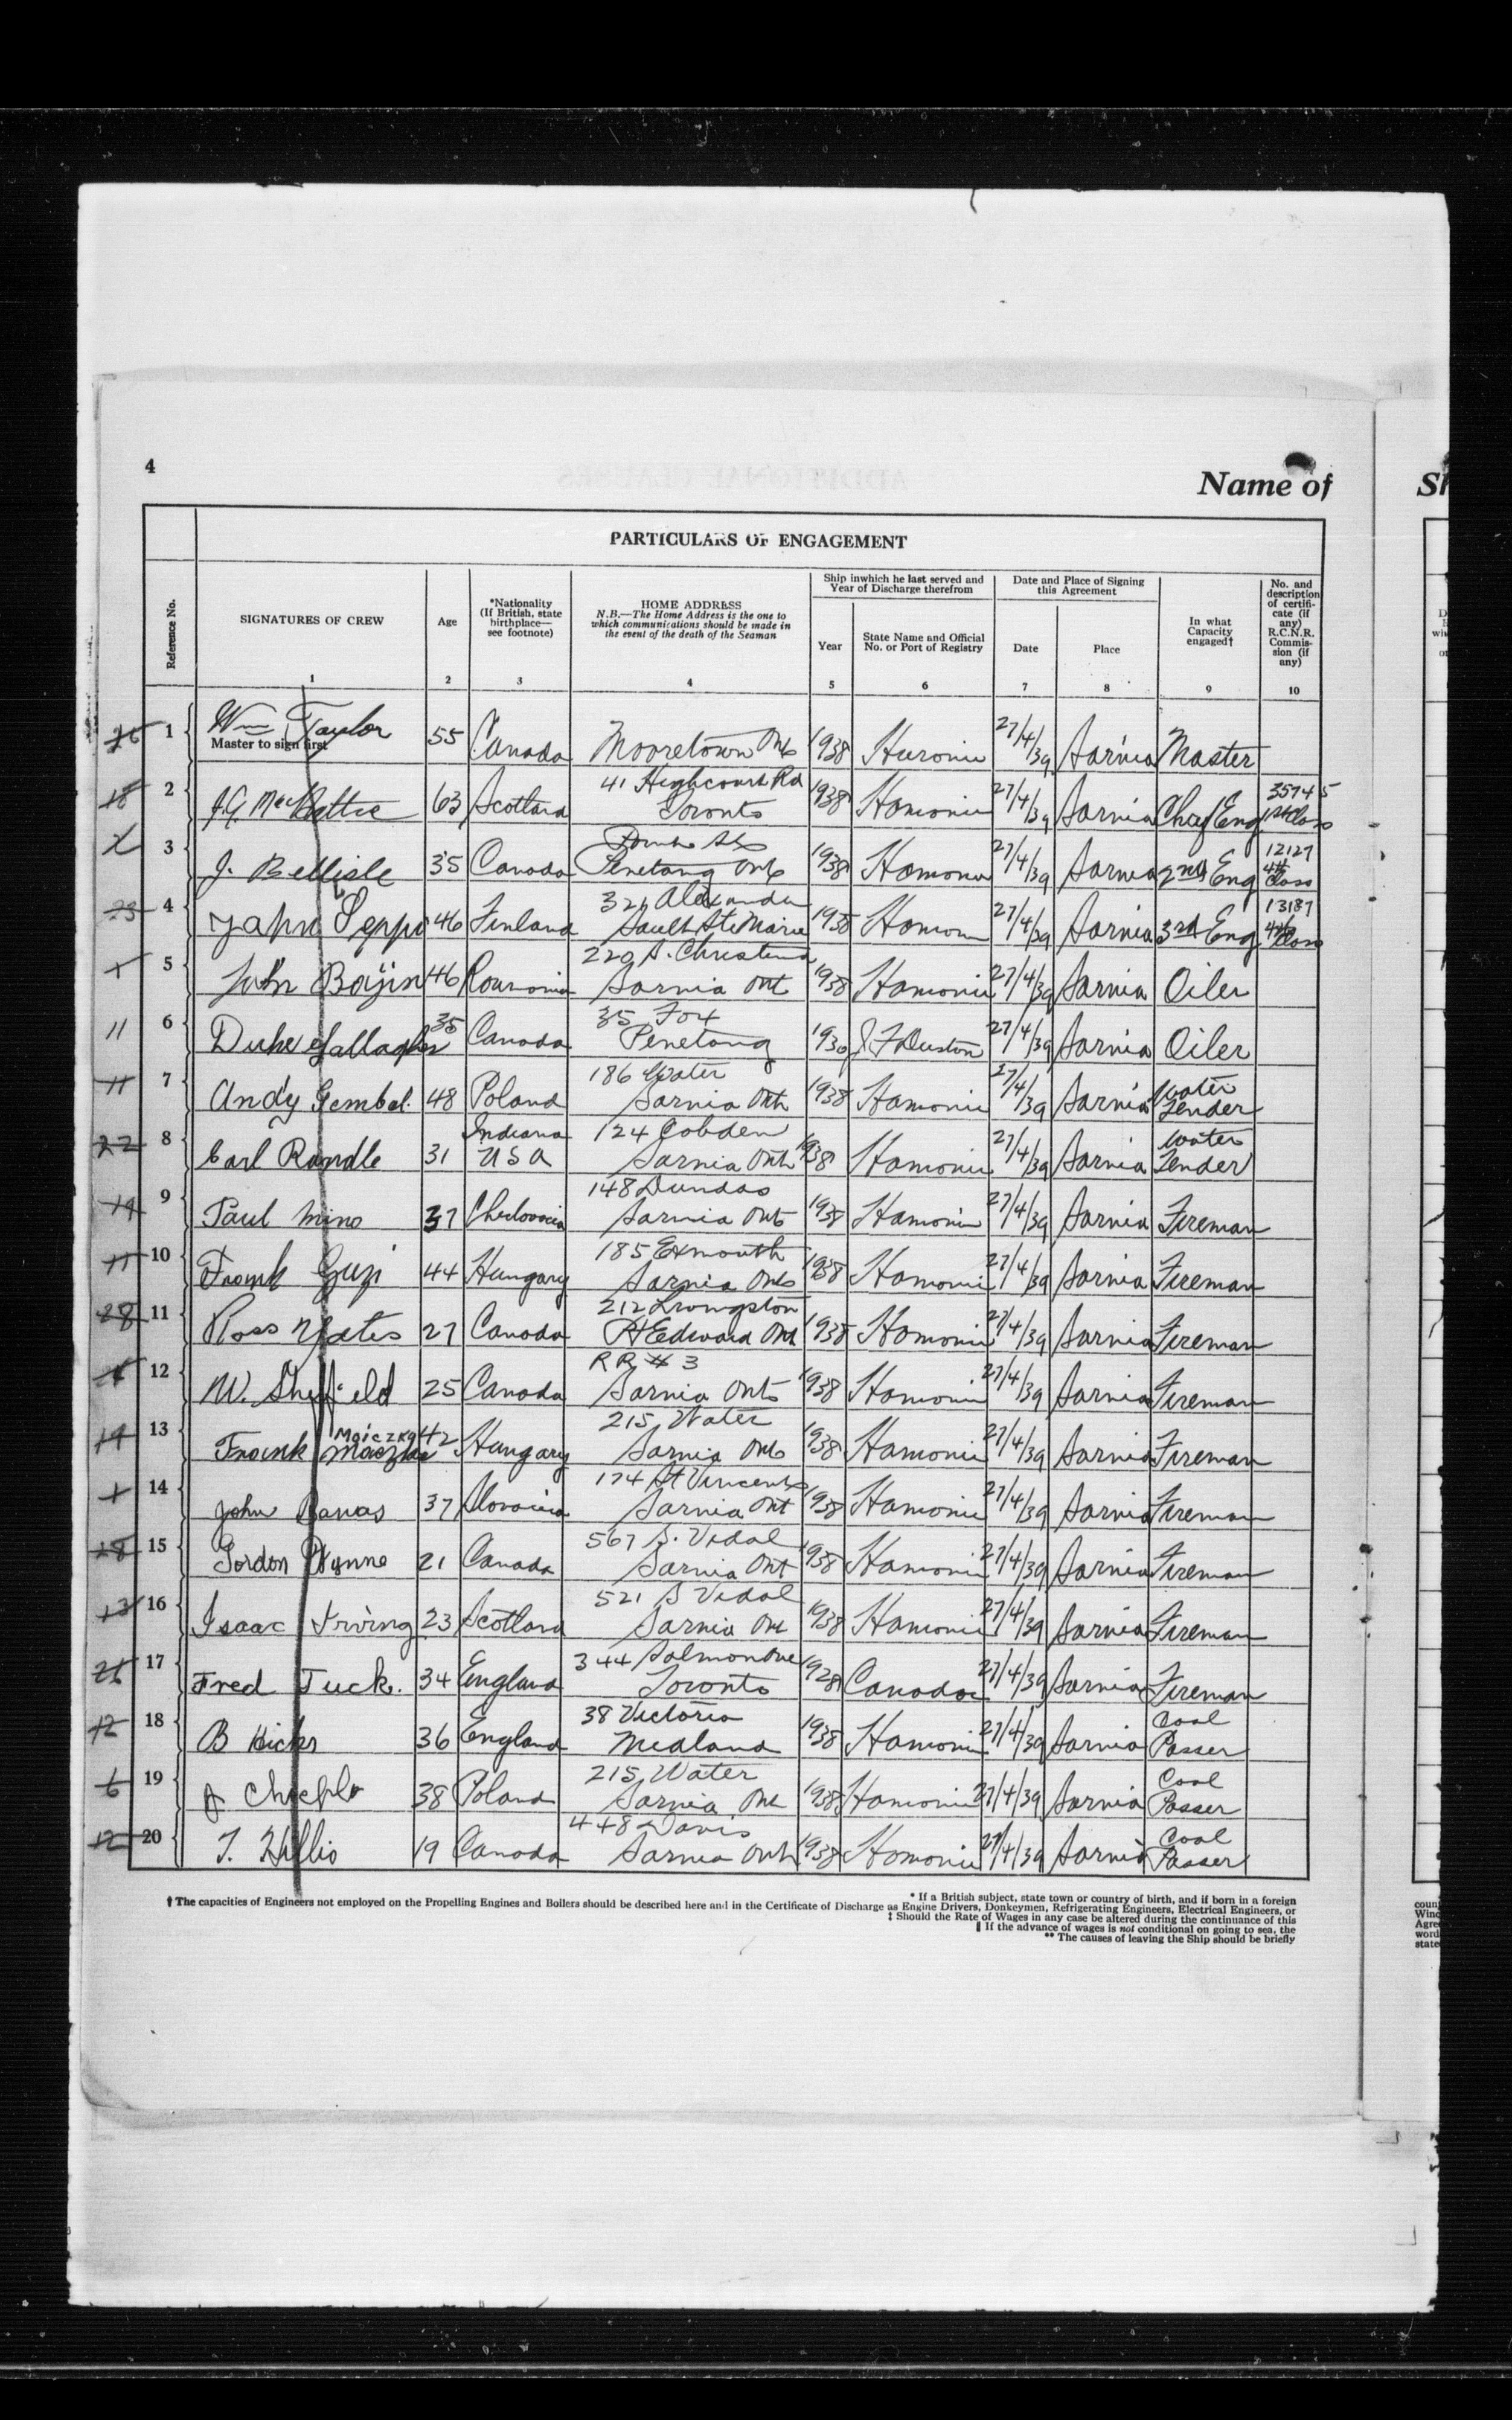 4
Name of
PARTICULARS OF ENGAGEMENT
Reference No.
SIGNATURES OF CREW
Age
*Nationality
(If British, state
birthplace—
see footnote)
HOME ADDRESS
N.B.—The Home Address is the one to
which communications should be made in
the event of the death of the Seaman
Ship in which he last served and
Year of Discharge therefrom
Year
State Name and Official
No. or Port of Registry
Date and Place of Signing
this Agreement
Date
Place
In what
Capacity
engaged†
No. and
description
of certifi-
cate (if
any)
R.C.N.R.
Commis-
sion (if
any)
1 2 3 4 5 6 7 8 9 10
1 Wm Taylor 55 Canada Mooretown Ont 1938 Huronic 27/4/39 Sarnia Master
Master to sign first
41 Highcourt Rd 35745
2 63 Scotland Toronto 1938 Hamonic 27/4/39 Sarnia Chief Eng 1st Class
12127
3 J. Bellisle 35 Canada Penetang Ont 1938 Hamonic 27/4/39 Sarnia 2nd Eng 4th Class
321 Alexander 13187
4 Seppi 46 Finland Sault Ste Marie 1938 Hamonic 27/4/39 Sarnia 3rd Eng 4th Class
220 S. Christina
5 John 46 Roumania Sarnia Ont 1938 Hamonic 27/4/39 Sarnia Oiler
35 Fox
6 Duke Gallagher 35 Canada Penetang 27/4/39 Sarnia Oiler
186 Water Water
7 Andy Gembal 48 Poland Sarnia Ont 1938 Hamonic 27/4/39 Sarnia Tender
Indiana 124 Cobden Water
8 Carl Randle 31 USA Sarnia Ont 1938 Hamonic 27/4/39 Sarnia Tender
148 Dundas
9 Paul Mino 37 Sarnia Ont 1938 Hamonic 27/4/39 Sarnia Fireman
185 Exmouth
10 Frank 44 Hungary Sarnia Ont 1938 Hamonic 27/4/39 Sarnia Fireman
212 Livingston
11 Ross Yates 27 Canada Pt Edward Ont 1938 Hamonic 27/4/39 Sarnia Fireman
RR # 3
12 W. Sheffield 25 Canada Sarnia Ont 1938 Hamonic 27/4/39 Sarnia Fireman
Majczka 215 Water
13 Frank 42 Hungary Sarnia Ont 1938 Hamonic 27/4/39 Sarnia Fireman
174 St Vincent
14 John Banas 37 Slovacia Sarnia Ont 1938 Hamonic 27/4/39 Sarnia Fireman
567 S. Vidal
15 Gordon Wynne 21 Canada Sarnia Ont 1938 Hamonic 27/4/39 Sarnia Fireman
521 S Vidal
16 Isaac Irving 23 Scotland Sarnia Ont 1938 Hamonic 27/4/39 Sarnia Fireman
344 Salmon Ave
17 Fred Tuck. 34 England Toronto 1928 27/4/39 Sarnia Fireman
38 Victoria Coal
18 B Hicks 36 England Midland 1938 Hamonic 27/4/39 Sarnia Passer
215 Water Coal
19 38 Poland Sarnia Ont 1938 Hamonic 27/4/39 Sarnia Passer
448 Davis Coal
20 T. Hillis 19 Canada Sarnia Ont 1938 Hamonic 27/4/39 Sarnia Passer
* If a British subject, state town or country of birth, and if born in a foreign
† The capacities of Engineers not employed on the Propelling Engines and Boilers should be described here and in the Certificate of Discharge as Engine Drivers, Donkeymen, Refrigerating Engineers, Electrical Engineers, or
‡ Should the Rate of Wages in any case be altered during the continuance of this
‖ If the advance of wages is not conditional on going to sea, the
** The causes of leaving the Ship should be briefly